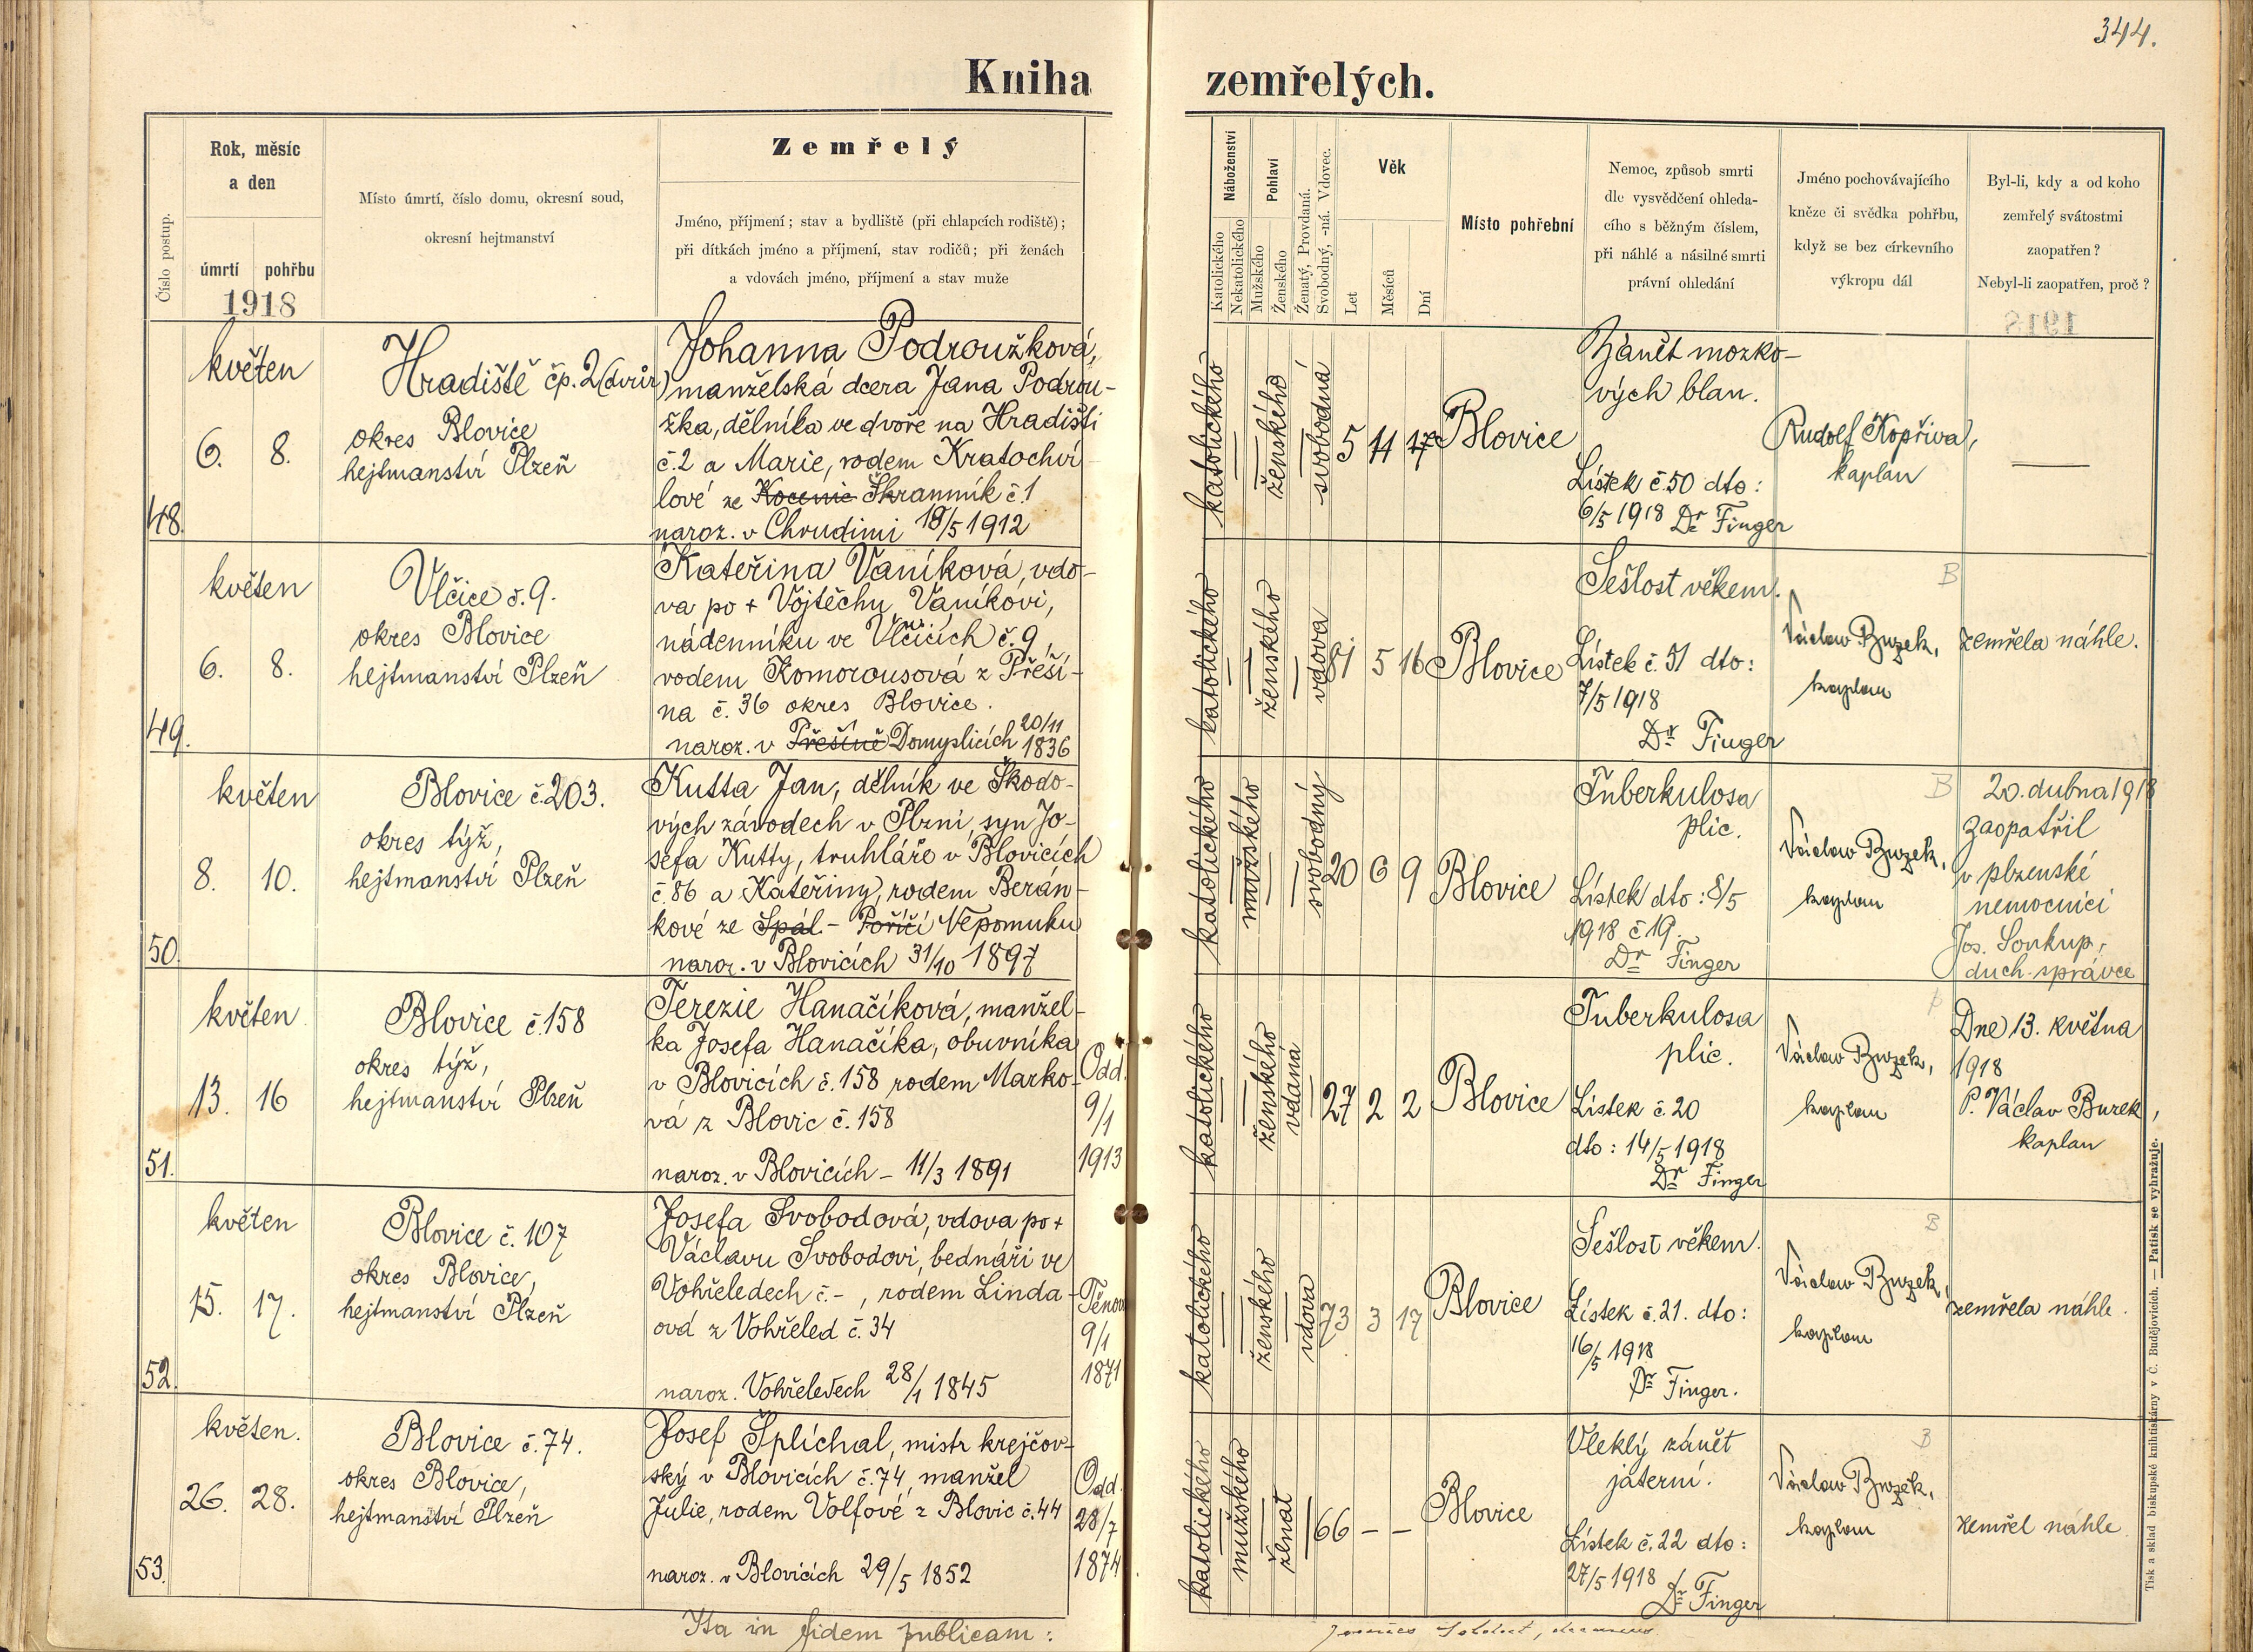 344.
Kniha zemřelých.
Číslo postup.
Rok, měsíc
a den
úmrtí
pohřbu
1918
Místo úmrtí, číslo domu, okresní soud,
okresní hejtmanství
Zemřelý
Jméno, příjmení; stav a bydliště (při chlapcích rodiště);
při dítkách jméno a příjmení, stav rodičů; při ženách
a vdovách jméno, příjmení a stav muže
Náboženství
Katolického
Nekatolického
Pohlaví
Mužského
Ženského
Ženatý, Provdaná.
Svobodný, -ná. Vdovec.
Věk
Let
Měsíců
Dní
Místo pohřební
Nemoc, způsob smrti
dle vysvědčení ohleda-
cího s běžným číslem,
při náhlé a násilné smrti
právní ohledání
Jméno pochovávajícího
kněze či svědka pohřbu,
když se bez církevního
výkropu dál
Byl-li, kdy a od koho
zemřelý svátostmi
zaopatřen?
Nebyl-li zaopatřen, proč?
48.
květen
6. 8.
Hradiště čp. 2 (dvůr)
okres Blovice
hejtmanství Plzeň
Johanna Podroužková,
manželská dcera Jana Podrou-
žka, dělníka ve dvoře na Hradišti
č. 2 a Marie, rodem Kratochví
lové ze Kocenic Škranník č. 1
naroz. v Chrudimi 19/5 1912
katolického
ženského
svobodná
5 11 17
Blovice
Zánět mozko-
vých blan.
Lístek č. 50 dto:
6/5 1918 Dr Finger
Rudolf Kopřiva,
kaplan
—
49.
květen
6. 8.
Vlčice č. 9.
okres Blovice
hejtmanství Plzeň
Kateřina Vaníková, vdo-
va po + Vojtěchu Vaníkovi,
nádenníku ve Vlčicích č. 9,
rodem Komorousová z Přeší-
na č. 36 okres Blovice.
naroz. v Přešíně Domyslicích 20/11 1836
katolického
ženského
vdova
81 5 16
Blovice
Sešlost věkem.
Lístek č. 51 dto:
7/5 1918
Dr Finger
B
Václav Burek,
kaplan
zemřela náhle.
50.
květen
8. 10.
Blovice č. 203.
okres týž,
hejtmanství Plzeň
Kutta Jan, dělník ve Škodo-
vých závodech v Plzni, syn Jo-
sefa Kutty, truhláře v Blovicích
č. 86 a Kateřiny, rodem Berán-
kové ze Spál. - Poříčí Nepomuku
naroz. v Blovicích 31/10 1897
katolického
mužského
svobodný
20 6 9
Blovice
Tuberkulosa
plic.
Lístek dto: 8/5
1918 č. 19.
Dr Finger
B
Václav Burek,
kaplan
20. dubna 1918
zaopatřil
v plzenské
nemocnici
Jos. Soukup,
duch. správce
51.
květen
13. 16
Blovice č. 158
okres týž,
hejtmanství Plzeň
Terezie Hanačíková, manžel-
ka Josefa Hanačíka, obuvníka
v Blovicích č. 158 rodem Marko-
vá z Blovic č. 158
naroz. v Blovicích - 11/3 1891
Odd.
9/1
1913
katolického
ženského
vdaná
27 2 2
Blovice
Tuberkulosa
plic.
Lístek č. 20
dto: 14/5 1918
Dr Finger
Václav Burek,
kaplan
Dne 13. května
1918
P. Václav Burek,
kaplan
52.
květen
15. 17.
Blovice č. 107
okres Blovice,
hejtmanství Plzeň
Josefa Svobodová, vdova po +
Václavu Svobodovi, bednáři ve
Vohřeledech č. -, rodem Linda-
ová z Vohřeled č. 34
naroz. Vohřeledech 28/1 1845
9/1
1871
katolického
ženského
vdova
73 3 17
Blovice
Sešlost věkem.
Lístek č. 21. dto:
16/5 1918
Dr Finger.
B
Václav Burek,
kaplan
zemřela náhle.
53.
květen.
26. 28.
Blovice č. 74.
okres Blovice,
hejtmanství Plzeň
Josef Šplíchal, mistr krejčov-
ský v Blovicích č. 74, manžel
Julie, rodem Volfové z Blovic č. 44
naroz. v Blovicích 29/5 1852
Odd.
28/7
1874
katolického
mužského
ženat
66 - -
Blovice
Vleklý zánět
jaterní.
Lístek č. 22 dto:
27/5 1918 Dr Finger
B
Václav Burek,
kaplan
zemřel náhle
Ita in fidem publicam:
Tisk a sklad biskupské knihtiskárny v Č. Budějovicích. — Patisk se vyhražuje.